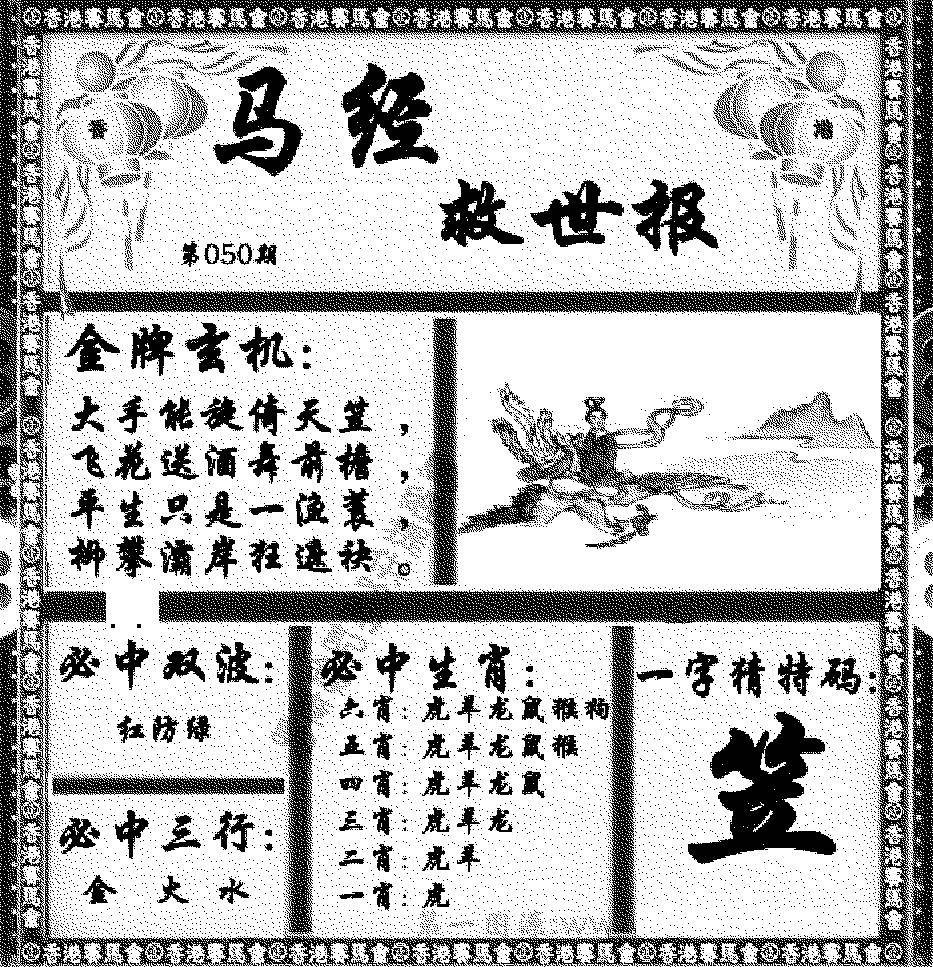 香港賽馬會 香港賽馬會 香港賽馬會 香港賽馬會 香港賽馬會 香港賽馬會 香港賽馬會
香 港
马经
救世报
第050期
金牌玄机：
大手能旋倚天笠，
飞花送酒舞前檐，
平生只是一渔蓑，
柳攀灞岸狂遮袂。
必中双波：
红防绿
必中三行：
金 火 水
必中生肖：
六肖：虎羊龙鼠猴狗
五肖：虎羊龙鼠猴
四肖：虎羊龙鼠
三肖：虎羊龙
二肖：虎羊
一肖：虎
一字猜特码：
笠
香港賽馬會 香港賽馬會 香港賽馬會 香港賽馬會 香港賽馬會 香港賽馬會 香港賽馬會